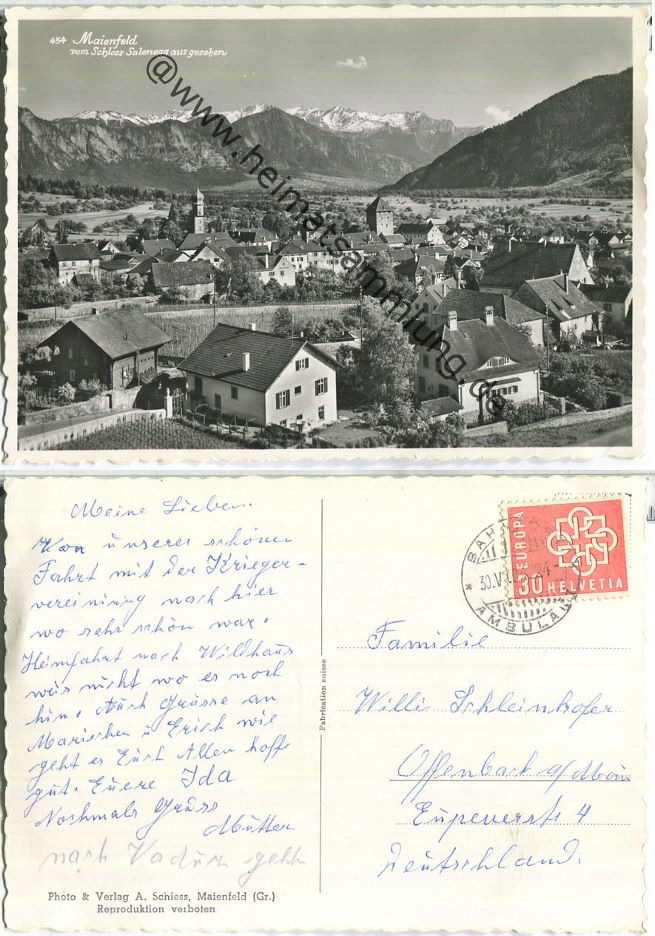 454 Maienfeld
vom Schloss Salenegg aus gesehen
@www.heimatsammlung.de
Meine Lieben.
Von unserer schönen
Fahrt mit der Krieger-
vereinining nach hier
wo sehr schön war.
Heimfahrt nach Wildhaus
weis nicht wo es noch
hin. Auch Grüsse an
Mariechen u Erich wie
geht es Euch Allen hoffe
gut. Euere Ida
Nochmals Gruss
Mutter
nach Vaduz gehn
Photo & Verlag A. Schiess, Maienfeld (Gr.)
Reproduktion verboten
Fabrication suisse
EUROPA
30 HELVETIA
BAH
30.VI
AMBULAN
Familie
Willi Schleinhofer
Offenbach a/Main
Eupenerstr 4
Deutschland.